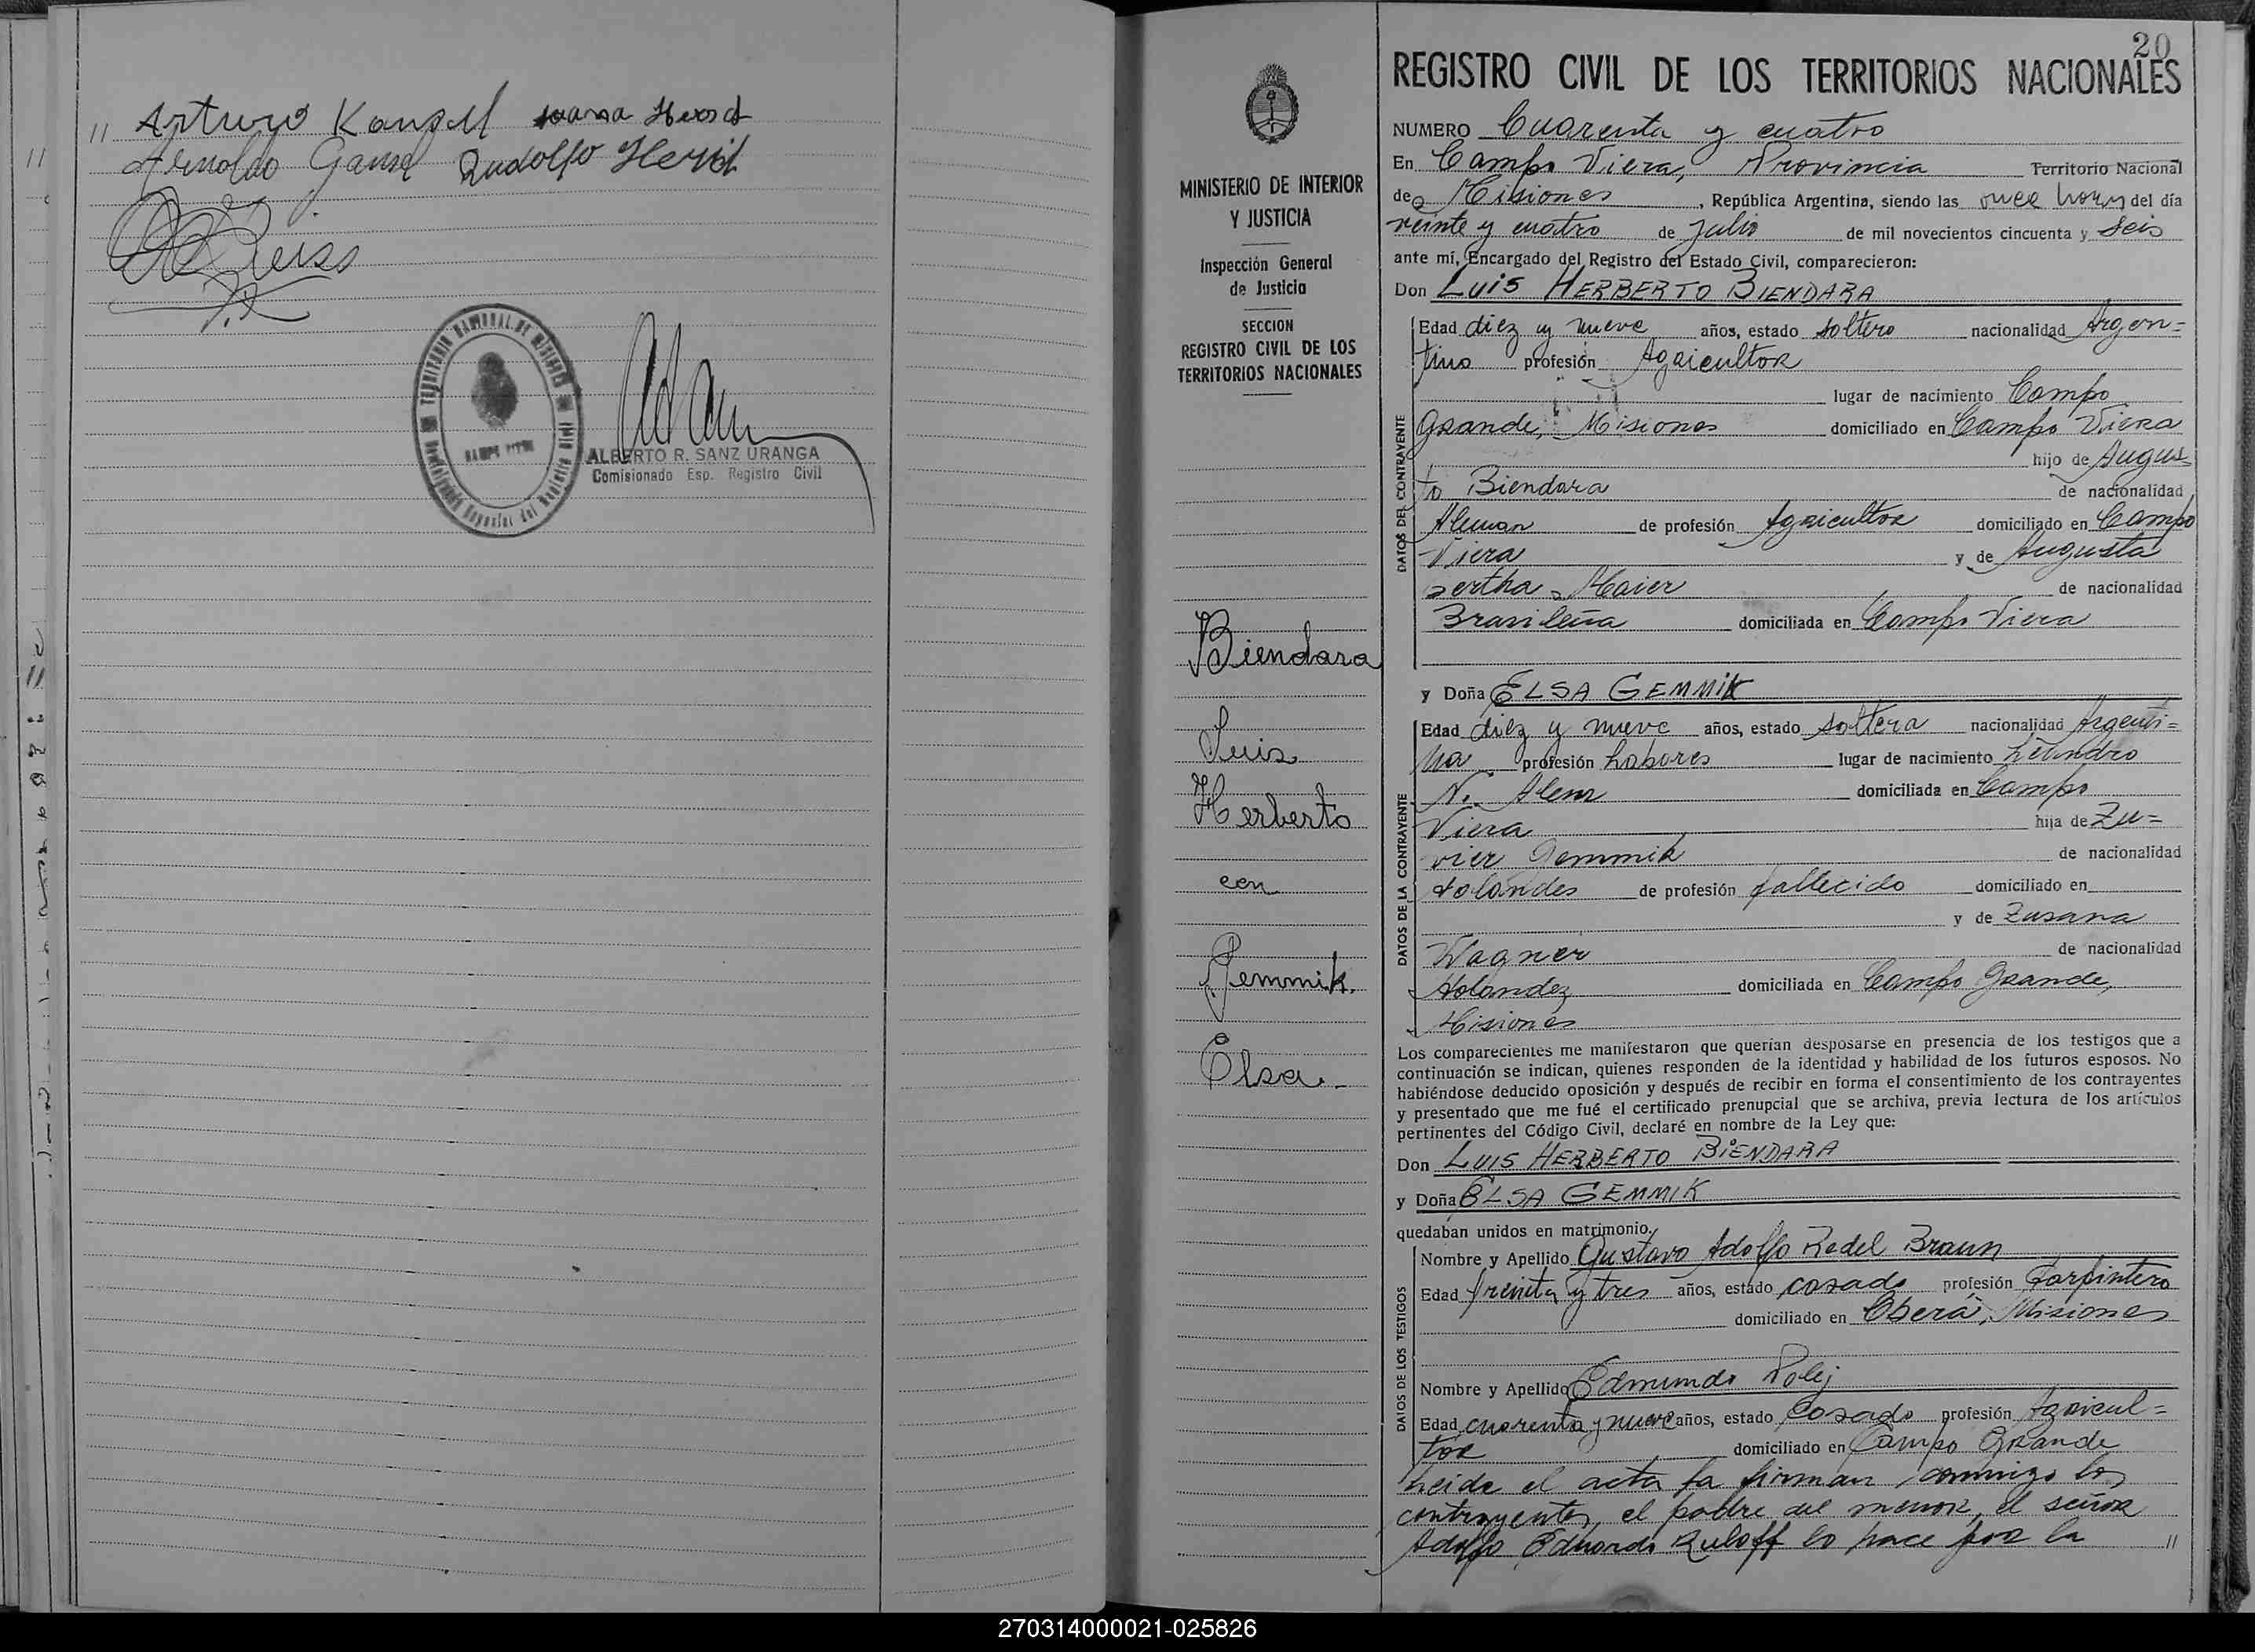 // Arturo Juana
Arnoldo Rudolfo
Reiss
CAMPO VIERA
ALBERTO R. SANZ URANGA
Comisionado Esp. Registro Civil
MINISTERIO DE INTERIOR
Y JUSTICIA
Inspección General
de Justicia
SECCION
REGISTRO CIVIL DE LOS
TERRITORIOS NACIONALES
Biendara
Luis
Herberto
con
Gemmik.
Elsa.-
20
REGISTRO CIVIL DE LOS TERRITORIOS NACIONALES
NUMERO Cuarenta y cuatro
En Campo Viera, Provincia Territorio Nacional
de Misiones, República Argentina, siendo las once horas del día
veinte y cuatro de julio de mil novecientos cincuenta y seis
ante mí, Encargado del Registro del Estado Civil, comparecieron:
Don LUIS HERBERTO BIENDARA
DATOS DEL CONTRAYENTE
Edad diez y nueve años, estado soltero nacionalidad Argen=
tino profesión Agricultor
lugar de nacimiento Campo
Grande, Misiones domiciliado en Campo Viera
hijo de Augus
to Biendara de nacionalidad
Aleman de profesión Agricultor domiciliado en Campo
Viera y de Augusta
Bertha Maier de nacionalidad
Brasileña domiciliada en Campo Viera
y Doña ELSA GEMMIK
DATOS DE LA CONTRAYENTE
Edad diez y nueve años, estado soltera nacionalidad Argenti=
na profesión labores lugar de nacimiento Leandro
N. Alem domiciliada en Campo
Viera hija de Zu=
vier Gemmik de nacionalidad
Holandes de profesión fallecido domiciliado en
y de Zusana
Wagner de nacionalidad
Holandez domiciliada en Campo Grande,
Misiones
Los comparecientes me manifestaron que querían desposarse en presencia de los testigos que a
continuación se indican, quienes responden de la identidad y habilidad de los futuros esposos. No
habiéndose deducido oposición y después de recibir en forma el consentimiento de los contrayentes
y presentado que me fué el certificado prenupcial que se archiva, previa lectura de los artículos
pertinentes del Código Civil, declaré en nombre de la Ley que:
Don LUIS HERBERTO BIENDARA
y Doña ELSA GEMMIK
quedaban unidos en matrimonio.
DATOS DE LOS TESTIGOS
Nombre y Apellido Gustavo Adolfo Redel Braun
Edad treinta y tres años, estado casado profesión Carpintero
domiciliado en Oberá, Misiones
Nombre y Apellido Edmundo Polej
Edad cuarenta y nueve años, estado Casado profesión Agricul=
tor domiciliado en Campo Grande
Leida el acta la firman conmigo los
contrayentes, el padre del menor, el señor
Adolfo Eduardo Ruloff lo hace por la //
270314000021-025826